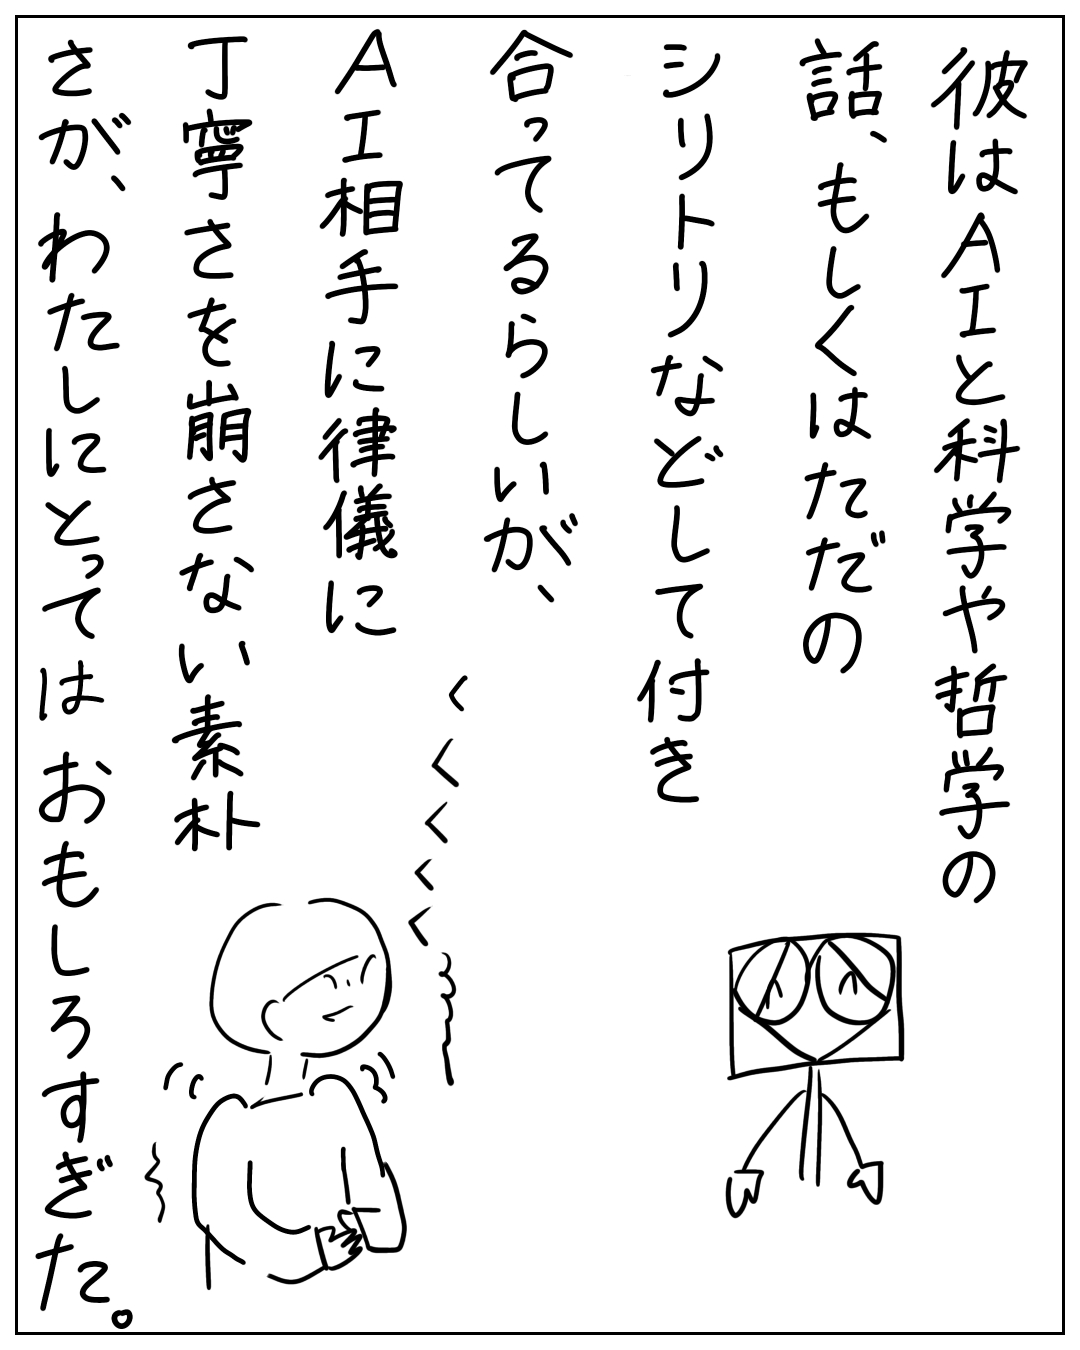 彼はAIと科学や哲学の
話、もしくはただの
シリトリなどして付き
合ってるらしいが、
AI相手に律儀に
丁寧さを崩さない素朴
さが、わたしにとってはおもしろすぎた。
くくくくく